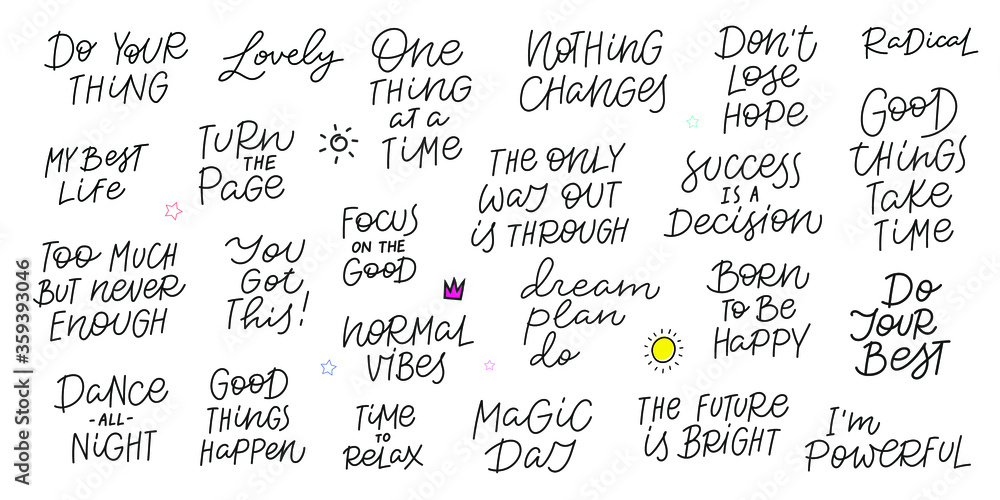 Do YOUR
THING
Lovely
One
THING
at a
TiME
NOTHING
CHanGes
Don't
Lose
HOPE
RaDicaL
MY BEST
LiFE
TURN
THE
PaGe
THE ONLY
WaY OUT
is THROUGH
SUCCESS
IS A
Decision
GOOD
tHiNGS
TaKe
TiME
TOO MUCH
BUT NeveR
ENOUGH
You
Got
This!
FOCUS
ON THE
GOOD
NORMaL
ViBES
dream
plan
do
BORN
To BE
HaPPY
Do
YOUR
BEST
DaNCE
-ALL-
NiGHT
GOOD
THiNGS
HaPPen
TiME
TO
ReLaX
MaGiC
DaY
THE FUTURE
is BRiGHT
I'm
POWERFUL
Adobe Stock | #359393046
Adobe Stock